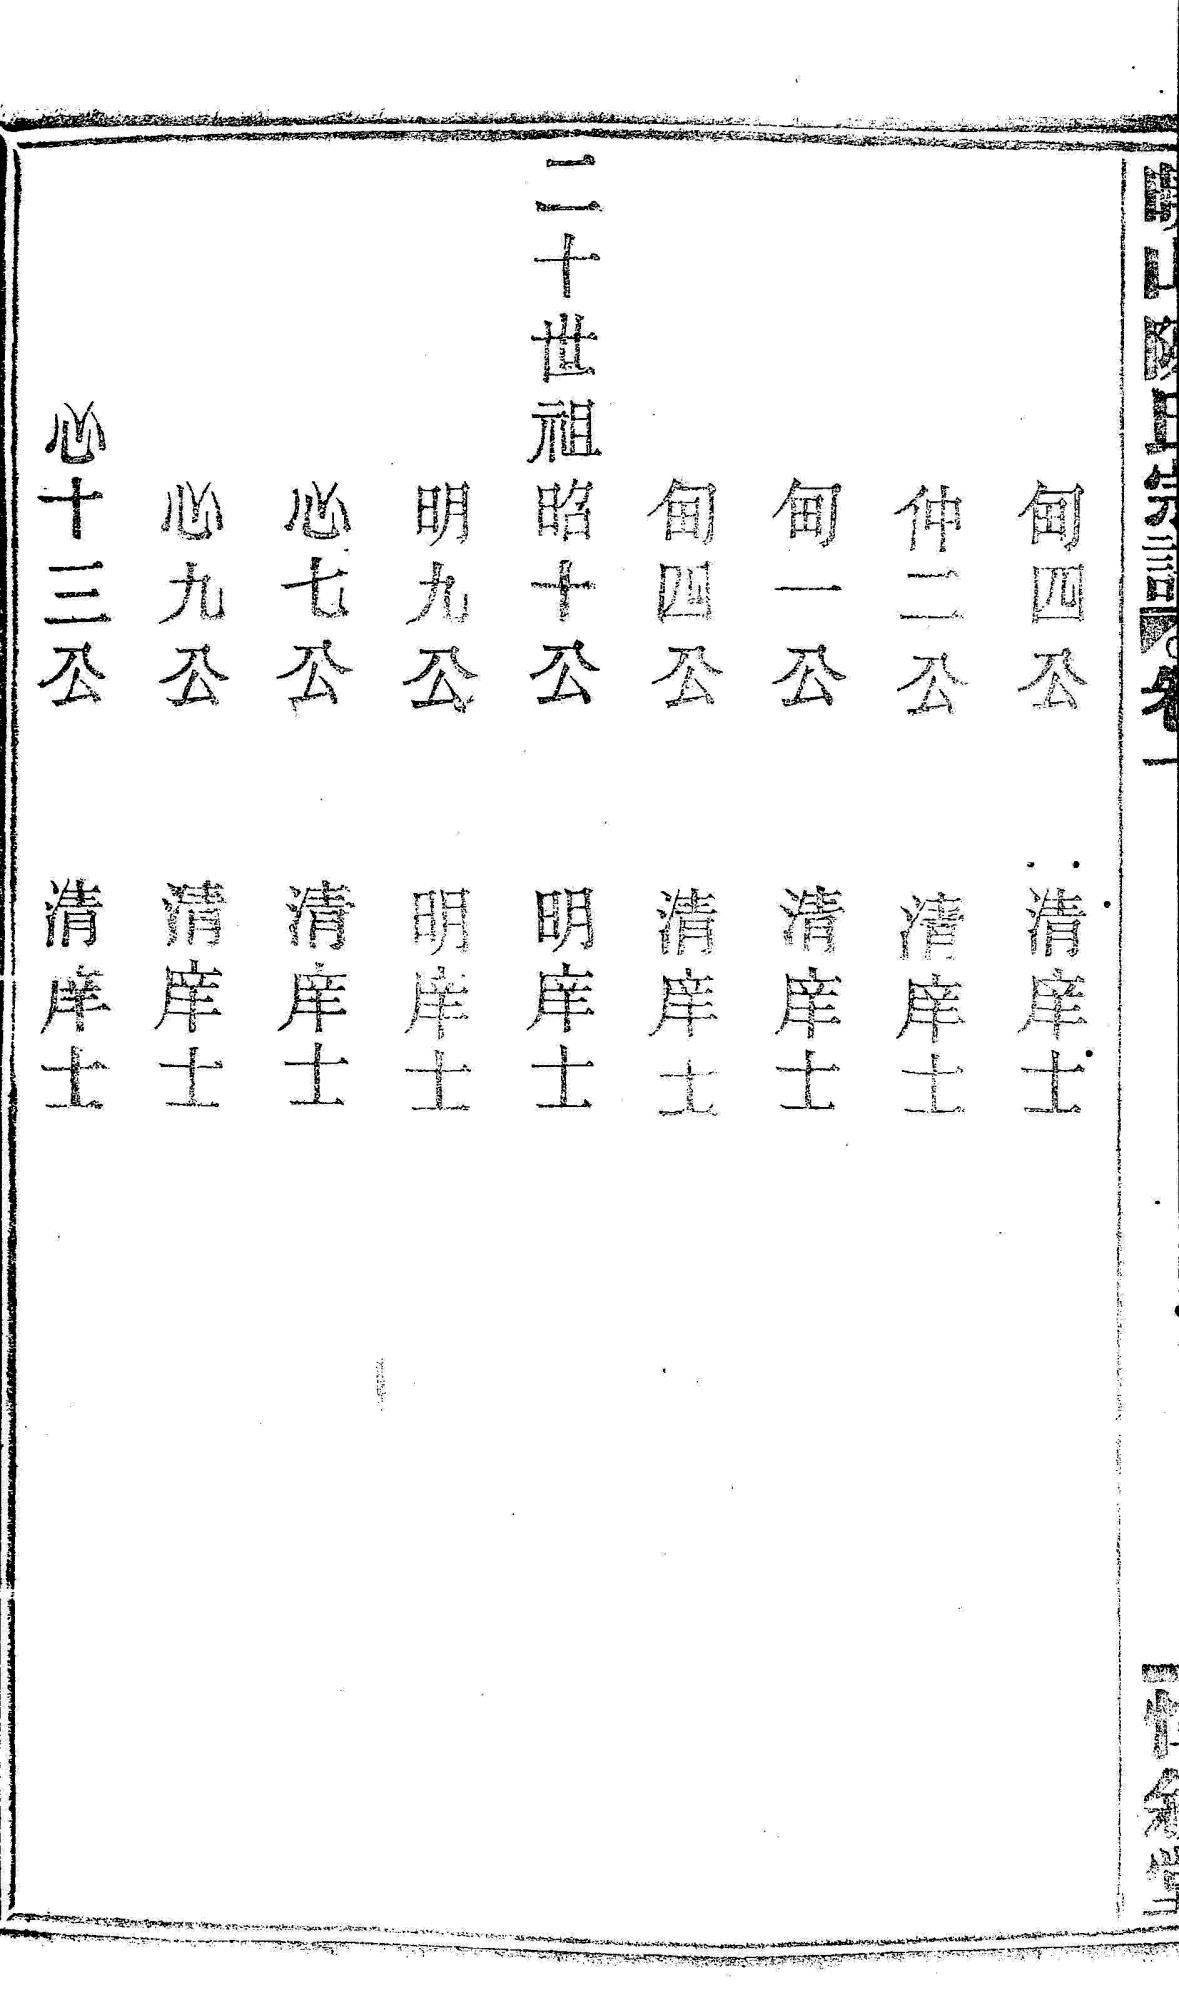 甸四公 清庠士
仲二公 清庠士
甸一公 清庠士
甸四公 清庠士
二十世祖昭十公 明庠士
明九公 明庠士
心七公 清庠士
心九公 清庠士
心十三公 清庠士
山陳氏宗譜 卷一
敘堂